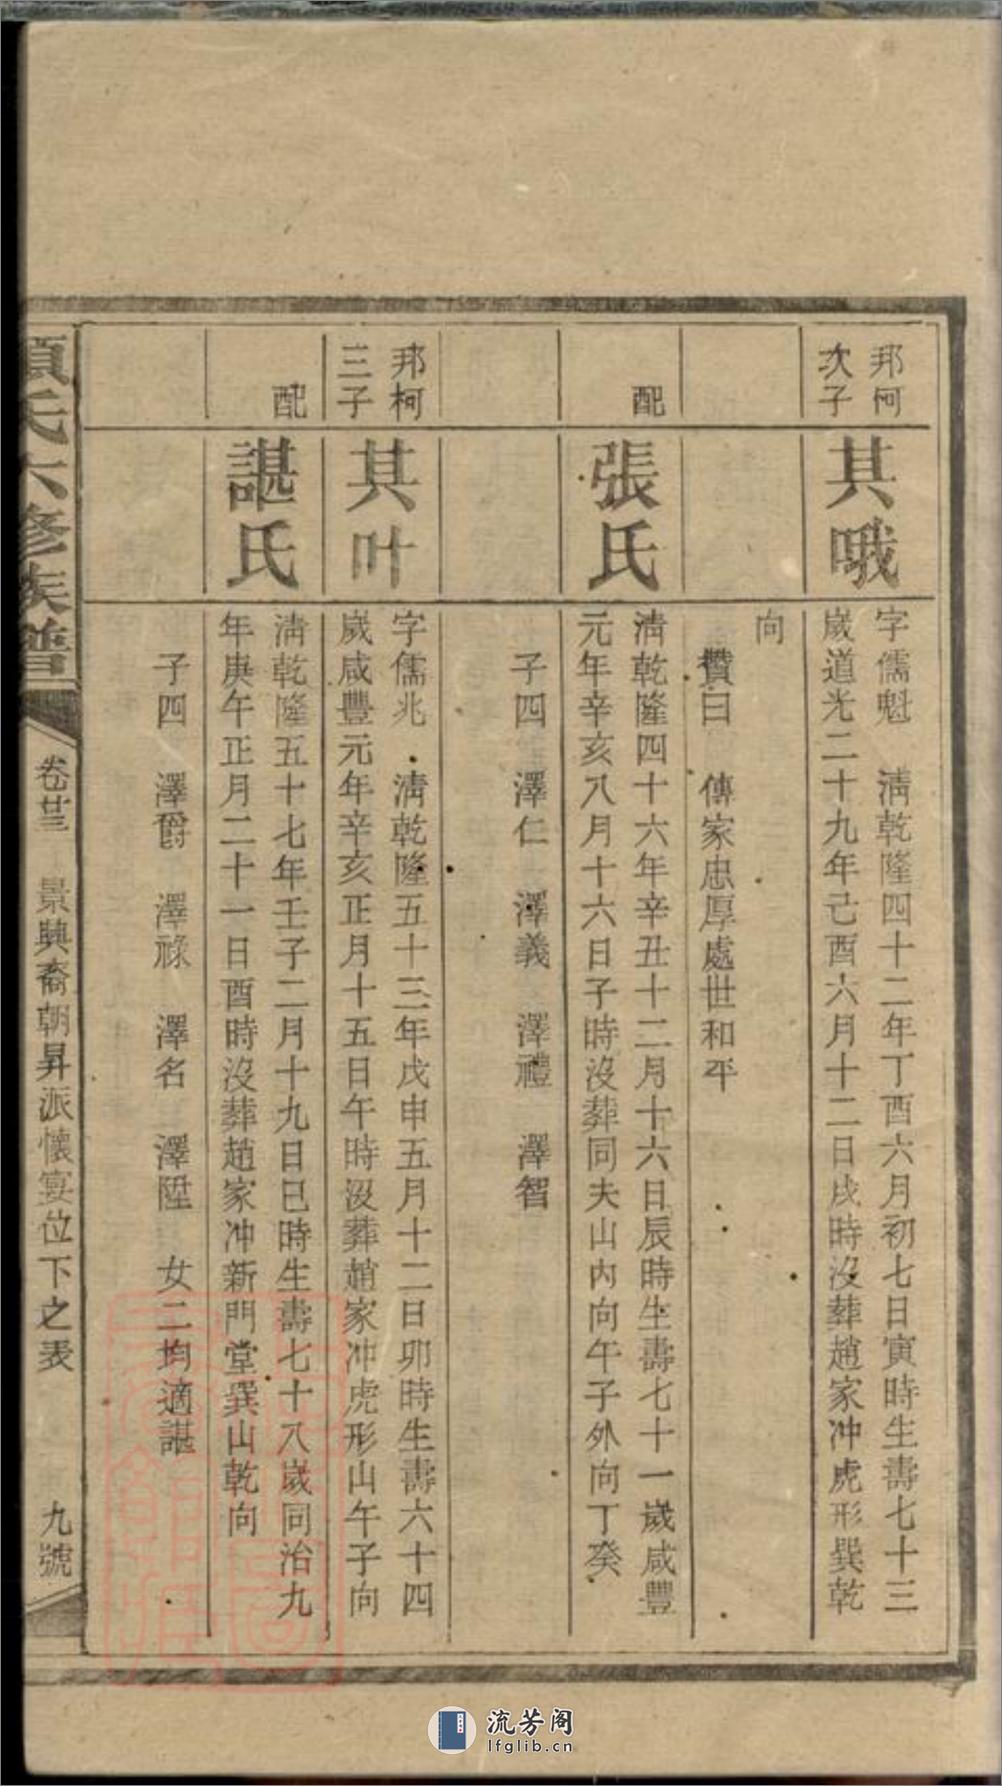 邦柯
次子
其哦
字儒魁　清乾隆四十二年丁酉六月初七日寅時生壽七十三
歲道光二十九年己酉六月十二日戌時沒葬趙家冲虎形巽乾
向
贊曰　傳家忠厚處世和平
配
張氏
清乾隆四十六年辛丑十二月十六日辰時生壽七十一歲咸豐
元年辛亥八月十六日子時沒葬同夫山內向午子外向丁癸
子四　澤仁　澤義　澤禮　澤智
邦柯
三子
其叶
字儒兆　清乾隆五十三年戊申五月十二日卯時生壽六十四
歲咸豐元年辛亥正月十五日午時沒葬趙家冲虎形山午子向
配
諶氏
清乾隆五十七年壬子二月十九日巳時生壽七十八歲同治九
年庚午正月二十一日酉時沒葬趙家冲新門堂巽山乾向
子四　澤爵　澤祿　澤名　澤陞　女二均適諶
氏六修族譜
卷廿三　景興裔朝昇派懷宴位下之表　九號
流芳阁
lfglib.cn